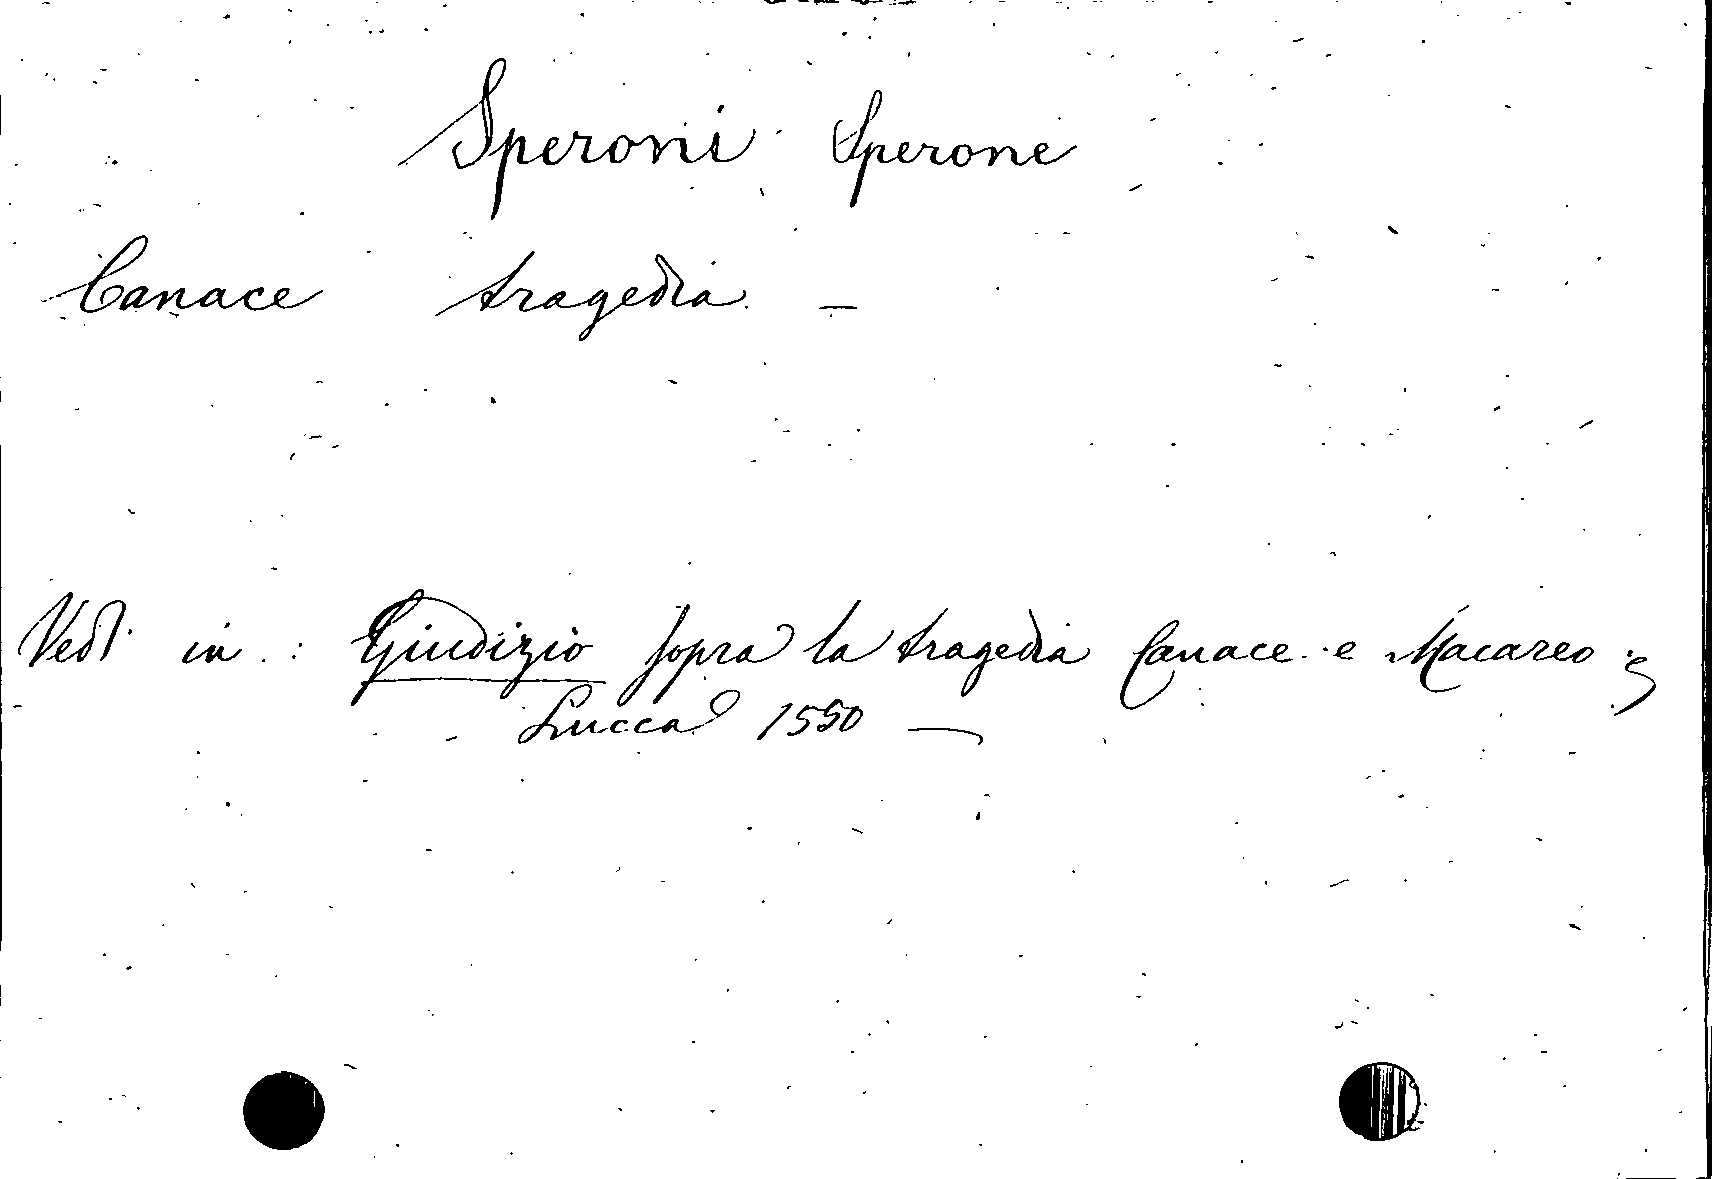 Speroni Sperone
Canace tragedia –
Vedi in : Giudizio sopra la tragedia Canace e Macareo ;
Lucca 1550 —